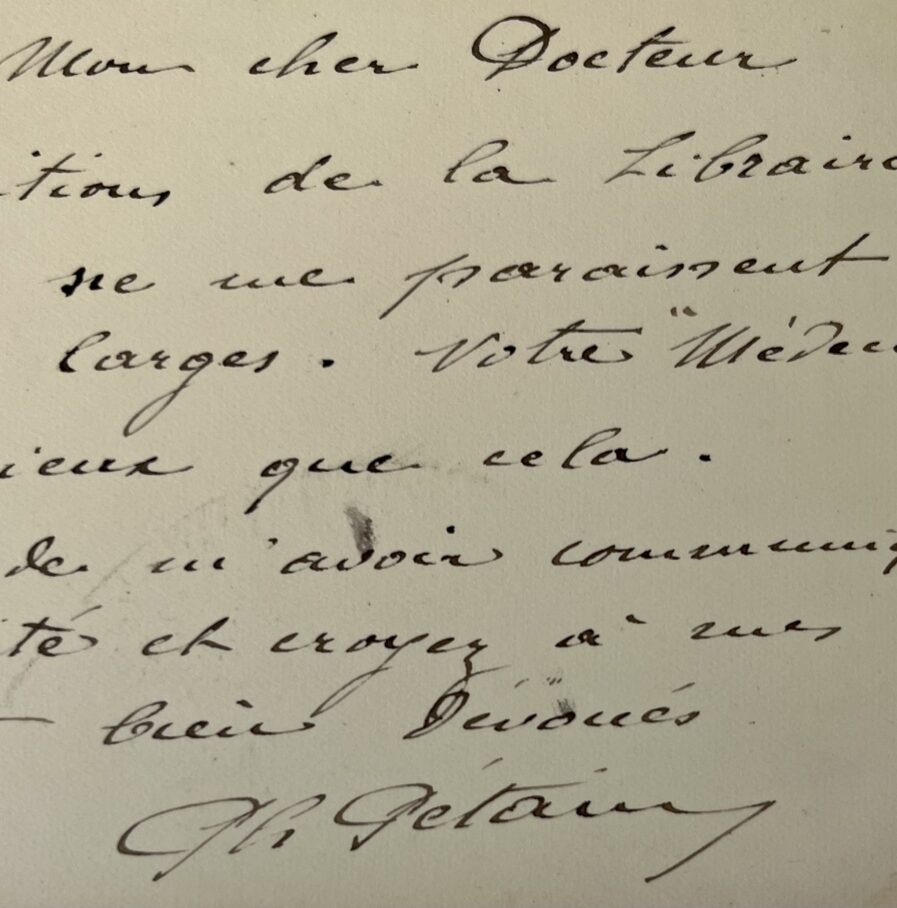 Mon cher Docteur
itions de la Librairie
ne me paraissent
larges. Votre "Médec
ieux que cela.
de m'avoir communiq
ité et croyez à mes
bien dévoués
Ph Pétain